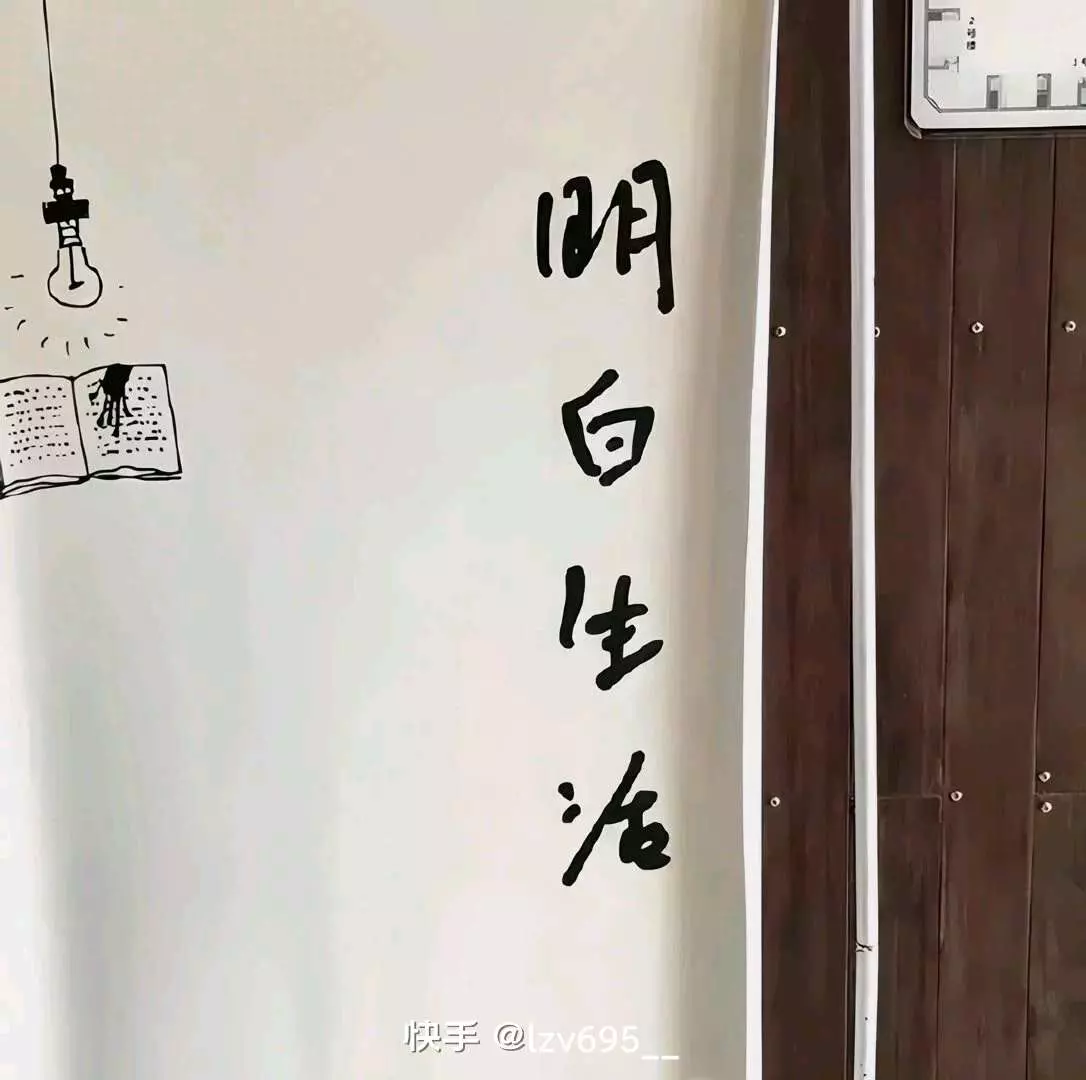 明白生活
2号楼
快手 @lzv695__